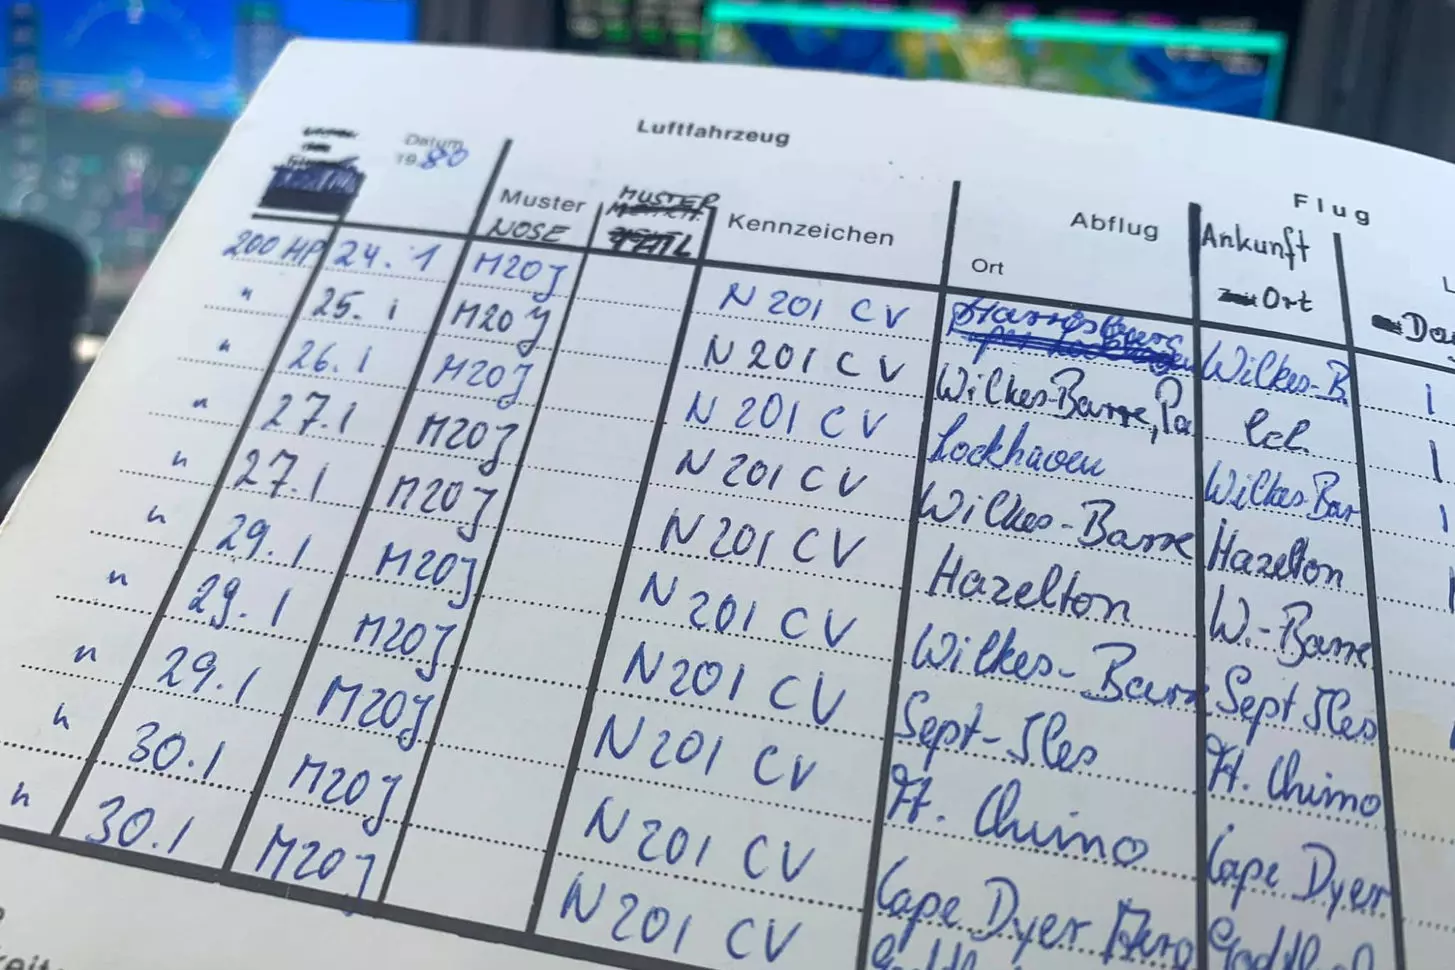 Luftfahrzeug
Flug
Datum
19 80
Muster
MUSTER
Kennzeichen
Abflug
Ankunft
NOSE
TAIL
Ort
Ort
200 HP 24. 1 M20J N 201 CV Harrisburg Wilkes-B
" 25. 1 M20J N 201 CV Wilkes-Barre, Pa
" 26. 1 M20J N 201 CV Lockhaven Wilkes-Bar
" 27. 1 M20J N 201 CV Wilkes-Barre Hazelton
" 27. 1 M20J N 201 CV Hazelton W.-Barre
" 29. 1 M20J N 201 CV Wilkes-Barre Sept Iles
" 29. 1 M20J N 201 CV Sept-Iles Ft. Chimo
" 29. 1 M20J N 201 CV Ft. Chimo Cape Dyer
" 30. 1 M20J N 201 CV Cape Dyer
" 30. 1 M20J N 201 CV